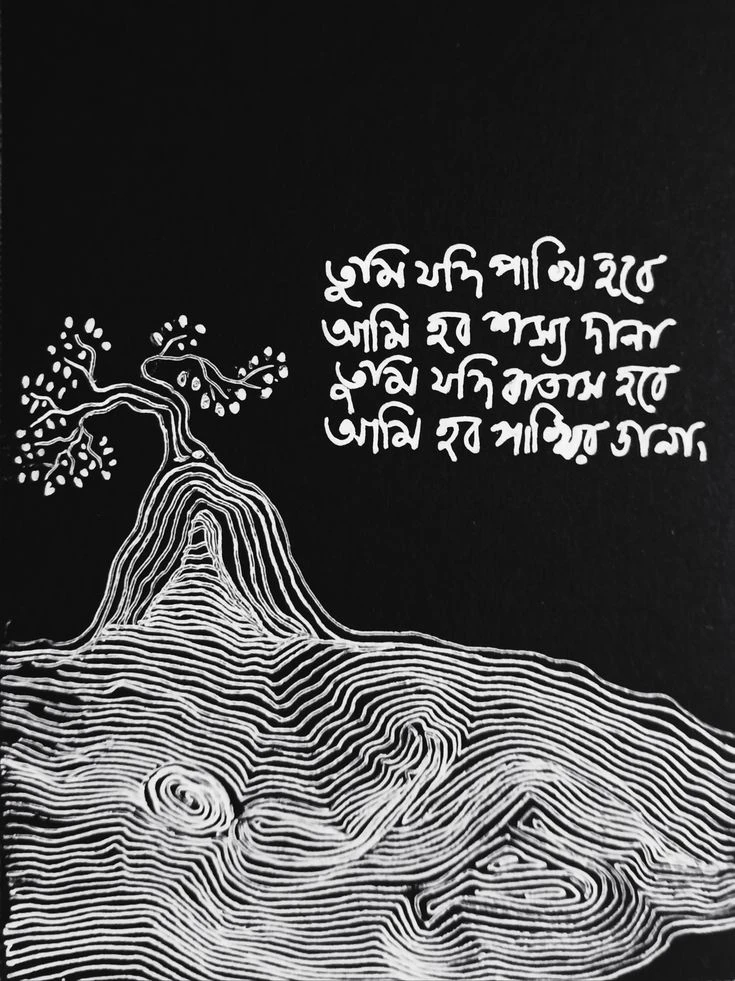 তুমি যদি পাখি হবে
আমি হব শস্য দানা
তুমি যদি বাতাস হবে
আমি হব পাখির ডানা